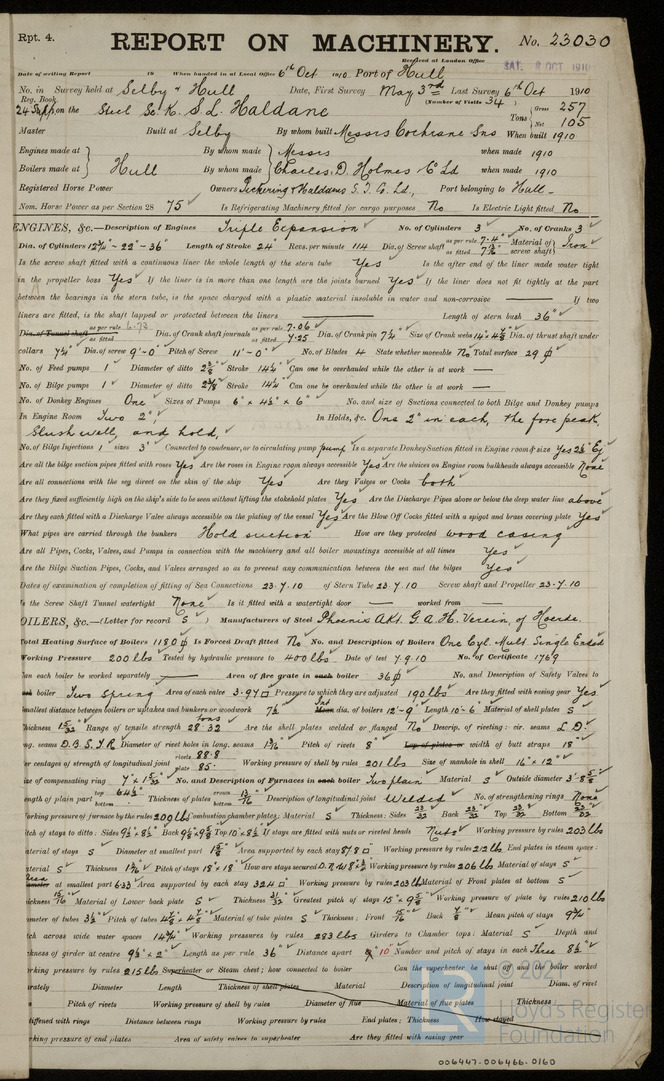 Rpt. 4.
REPORT ON MACHINERY. No. 23030
Received at London Office
SAT. 8 OCT 1910
Date of writing Report 19 When handed in at Local Office 6th Oct 1910 Port of Hull
No. in Survey held at Selby & Hull Date, First Survey May 3rd Last Survey 6th Oct 1910
Reg. Book. (Number of Visits 34)
24 Supp on the Steel Sc. K. S.L. Haldane Tons Gross 257 Net 105
Master Built at Selby By whom built Messrs Cochrane Sns When built 1910
Engines made at Hull By whom made Messrs when made 1910
Boilers made at By whom made Charles D. Holmes & Co Ld when made 1910
Registered Horse Power Owners Pickering & Haldanes S. T. Co. Ld, Port belonging to Hull
Nom. Horse Power as per Section 28 75 Is Refrigerating Machinery fitted for cargo purposes No Is Electric Light fitted No
ENGINES, &c.—Description of Engines Triple Expansion No. of Cylinders 3 No. of Cranks 3
Dia. of Cylinders 12¾"-22"-36" Length of Stroke 24" Revs. per minute 114 Dia. of Screw shaft as per rule 7.4" as fitted Material of screw shaft Iron
Is the screw shaft fitted with a continuous liner the whole length of the stern tube Yes Is the after end of the liner made water tight
in the propeller boss Yes If the liner is in more than one length are the joints burned Yes If the liner does not fit tightly at the part
between the bearings in the stern tube, is the space charged with a plastic material insoluble in water and non-corrosive — If two
liners are fitted, is the shaft lapped or protected between the liners — Length of stern bush 36"
Dia. of Tunnel shaft as per rule 6.72 as fitted Dia. of Crank shaft journals as per rule 7.06 as fitted 7.25 Dia. of Crank pin 7¼" Size of Crank webs Dia. of thrust shaft under
collars 7¼" Dia. of screw 9'-0" Pitch of Screw 11'-0" No. of Blades 4 State whether moveable No Total surface 29
No. of Feed pumps 1 Diameter of ditto Stroke 14¼" Can one be overhauled while the other is at work —
No. of Bilge pumps 1 Diameter of ditto Stroke 14¼" Can one be overhauled while the other is at work —
No. of Donkey Engines One Sizes of Pumps 6" x 4½" x 6" No. and size of Suctions connected to both Bilge and Donkey pumps
In Engine Room Two 2" In Holds, &c. One 2" in each, the fore peak,
Slush well, and hold,
No. of Bilge Injections 1 sizes 3" Connected to condenser, or to circulating pump pump Is a separate Donkey Suction fitted in Engine room & size Yes 2½" Ej
Are all the bilge suction pipes fitted with roses Yes Are the roses in Engine room always accessible Yes Are the sluices on Engine room bulkheads always accessible None
Are all connections with the sea direct on the skin of the ship Yes Are they Valves or Cocks both
Are they fixed sufficiently high on the ship's side to be seen without lifting the stokehold plates Yes Are the Discharge Pipes above or below the deep water line above
Are they each fitted with a Discharge Valve always accessible on the plating of the vessel Yes Are the Blow Off Cocks fitted with a spigot and brass covering plate Yes
What pipes are carried through the bunkers Hold suction How are they protected wood casing
Are all Pipes, Cocks, Valves, and Pumps in connection with the machinery and all boiler mountings accessible at all times Yes
Are the Bilge Suction Pipes, Cocks, and Valves arranged so as to prevent any communication between the sea and the bilges Yes
Dates of examination of completion of fitting of Sea Connections 23.7.10 of Stern Tube 23.7.10 Screw shaft and Propeller 23.7.10
Is the Screw Shaft Tunnel watertight None Is it fitted with a watertight door — worked from —
OILERS, &c.—(Letter for record S) Manufacturers of Steel Phoenix Akt. G.A.H. Verein, of Hoerde.
Total Heating Surface of Boilers 1180 Is Forced Draft fitted No No. and Description of Boilers One Cyl. Mult. Single Ended
Working Pressure 200 lbs Tested by hydraulic pressure to 400 lbs Date of test 7.9.10 No. of Certificate 1769
Can each boiler be worked separately — Area of fire grate in each boiler 36 No. and Description of Safety Valves to
each boiler Two Spring Area of each valve 3.97 Pressure to which they are adjusted 190 lbs Are they fitted with easing gear Yes
Smallest distance between boilers or uptakes and bunkers or woodwork 7½ Mean dia. of boilers 12'-9" Length 10'-6" Material of shell plates S
Thickness 15/32 Range of tensile strength 28-32 tons Are the shell plates welded or flanged No Descrip. of riveting: cir. seams L.D.
long. seams D.B.S.J.R Diameter of rivet holes in long. seams Pitch of rivets 8" Lap of plates or width of butt straps 18"
Per centages of strength of longitudinal joint rivets 88.8 plate 85. Working pressure of shell by rules 201 lbs Size of manhole in shell 16" x 12"
Size of compensating ring 7" x 15/32 No. and Description of Furnaces in each boiler Two plain Material S Outside diameter
Length of plain part top bottom Thickness of plates crown bottom Description of longitudinal joint Welded No. of strengthening rings None
Working pressure of furnace by the rules 200 lbs Combustion chamber plates: Material S Thickness: Sides Back Top Bottom
Pitch of stays to ditto: Sides Back Top If stays are fitted with nuts or riveted heads Nuts Working pressure by rules 203 lbs
Material of stays S Diameter at smallest part Area supported by each stay Working pressure by rules 212 lbs End plates in steam space:
Material S Thickness Pitch of stays 18" x 18" How are stays secured Working pressure by rules 206 lbs Material of stays S
Area at smallest part 6.33 Area supported by each stay 324 Working pressure by rules 203 lbs Material of Front plates at bottom S
Thickness Material of Lower back plate S Thickness Greatest pitch of stays Working pressure of plate by rules 210 lbs
Diameter of tubes 3½" Pitch of tubes Material of tube plates S Thickness: Front Back Mean pitch of stays
Pitch across wide water spaces 14¾" Working pressures by rules 283 lbs Girders to Chamber tops: Material S Depth and
thickness of girder at centre 9½" x 2" Length as per rule 36" Distance apart 10" Number and pitch of stays in each Three 8½"
Working pressure by rules 215 lbs Superheater or Steam chest; how connected to boiler Can the superheater be shut off and the boiler worked
separately Diameter Length Thickness of shell plates Material Description of longitudinal joint Diam. of rivet
Pitch of rivets Working pressure of shell by rules Diameter of flue Material of flue plates Thickness
stiffened with rings Distance between rings Working pressure by rules End plates: Thickness How stayed
Working pressure of end plates Area of safety valves to superheater Are they fitted with easing gear
© 2021
Lloyd's Register
Foundation
006447-006466-0160